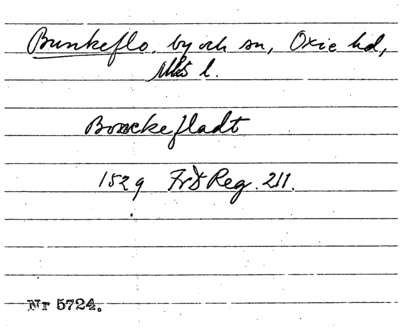 Bunkeflo, by och sn, Oxie hd,
Mhs l.
Bonckefladt
1529 FrdReg. 211.
Nr 5724.